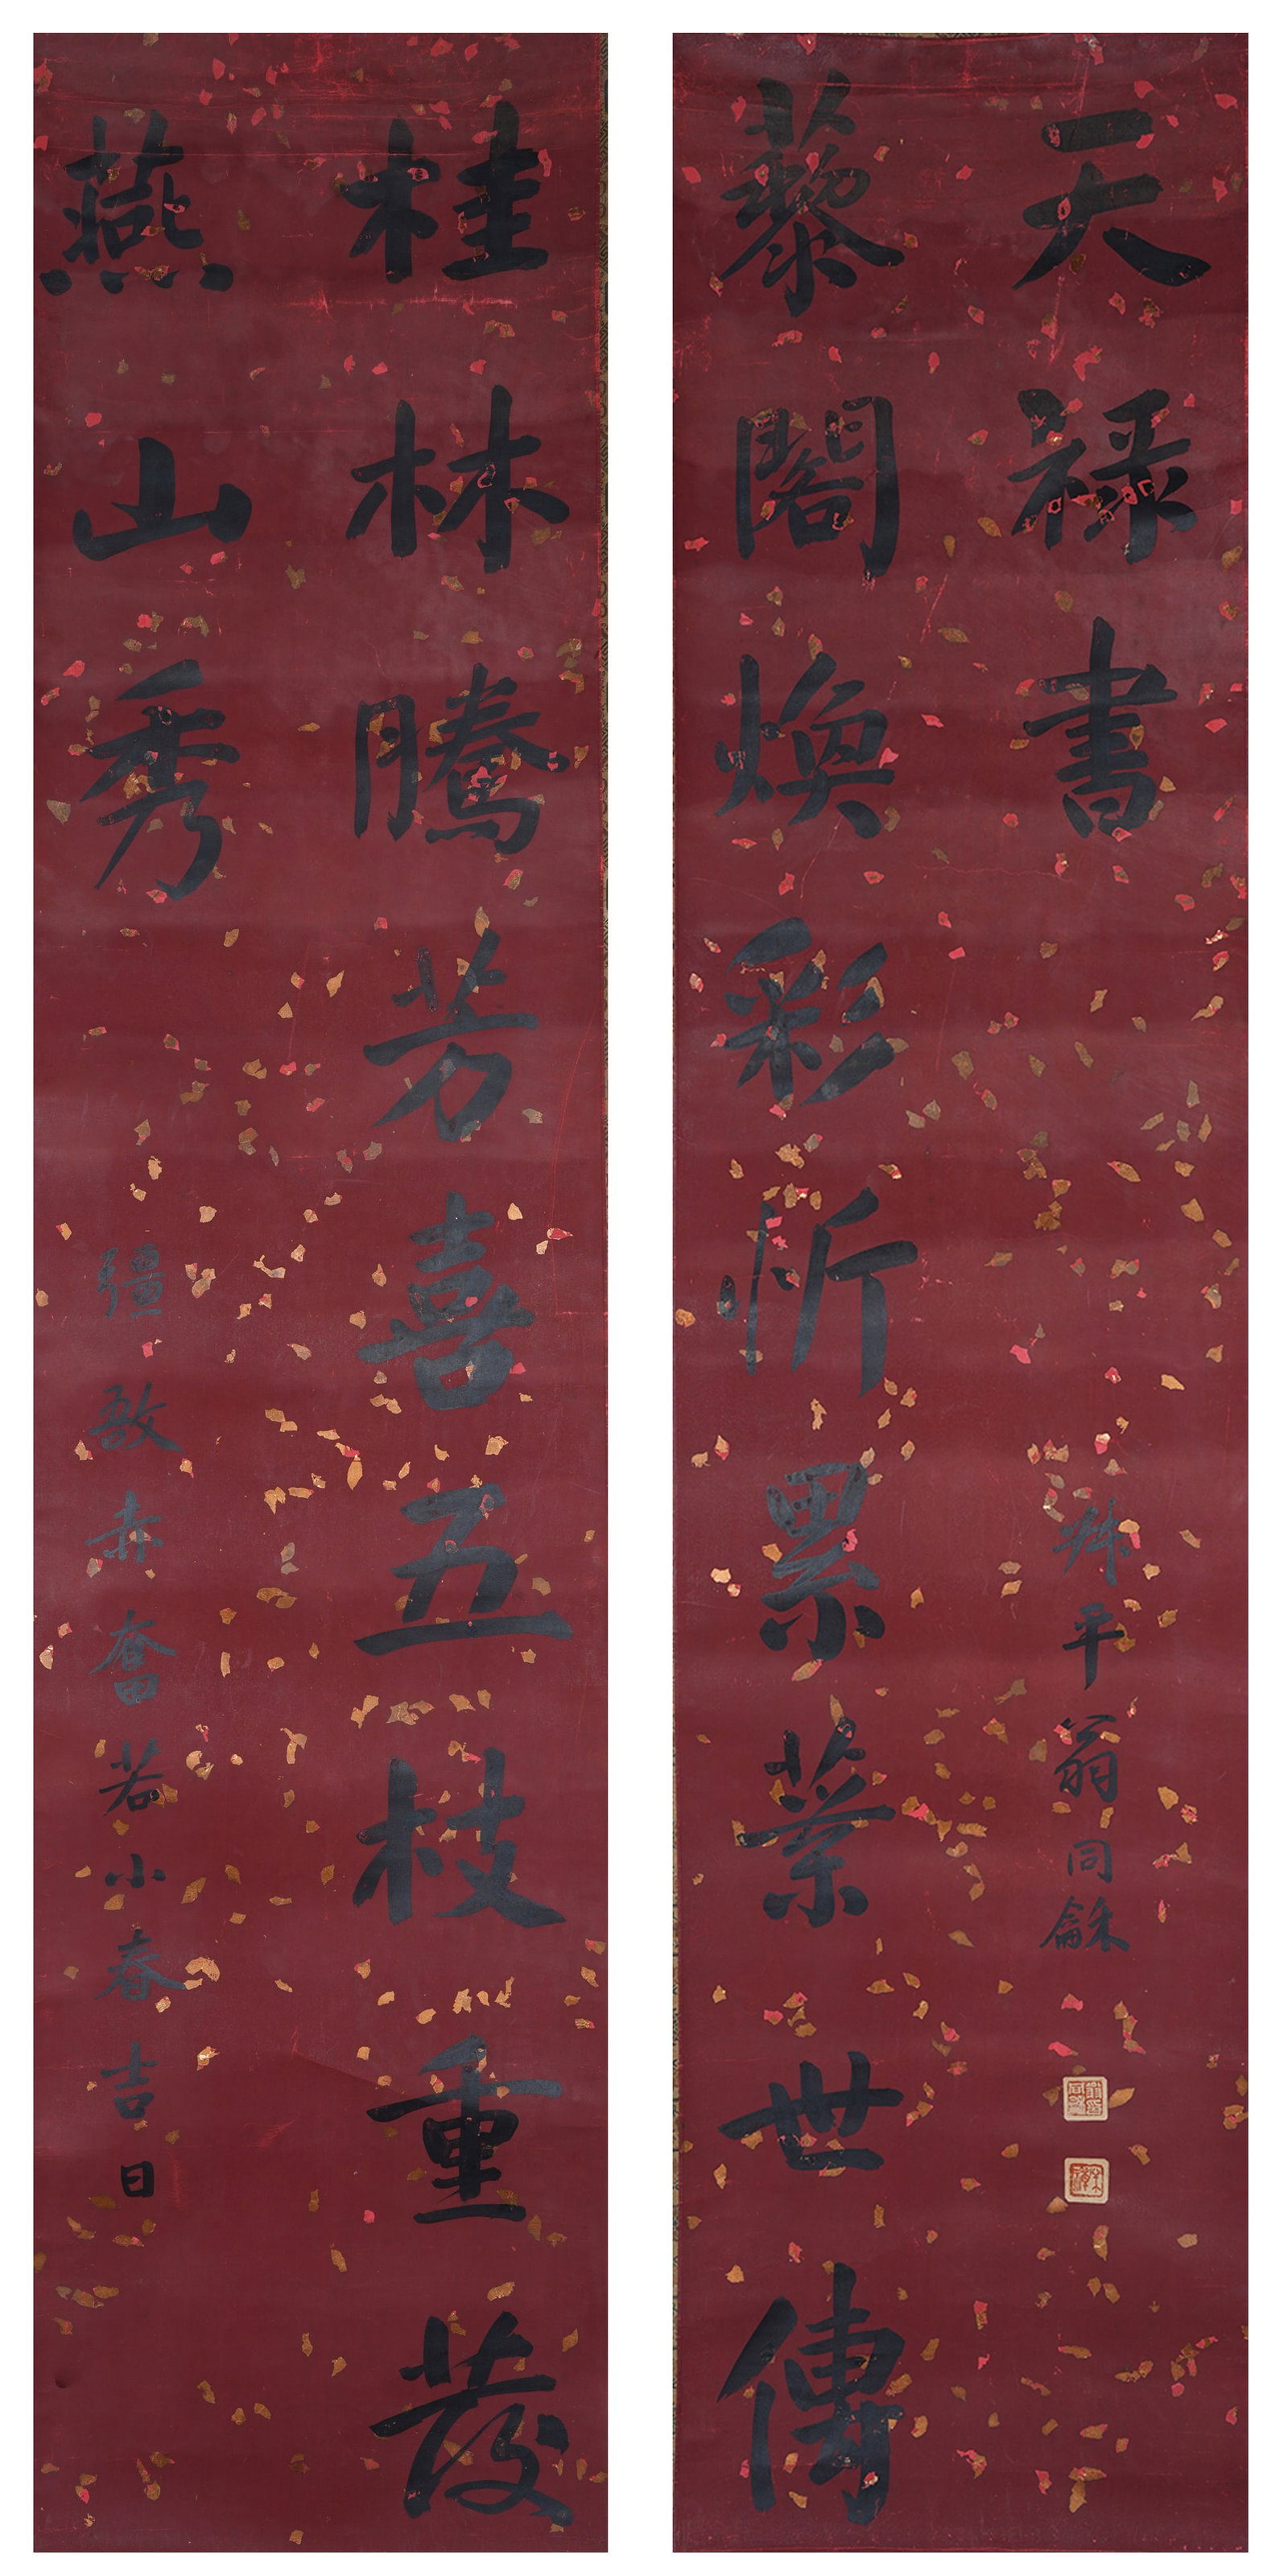 桂林騰芳喜五枝重發
燕山秀
彊敔赤奮若小春吉日
藜閣煥彩忻累葉世傳
天禄書
叔平翁同龢